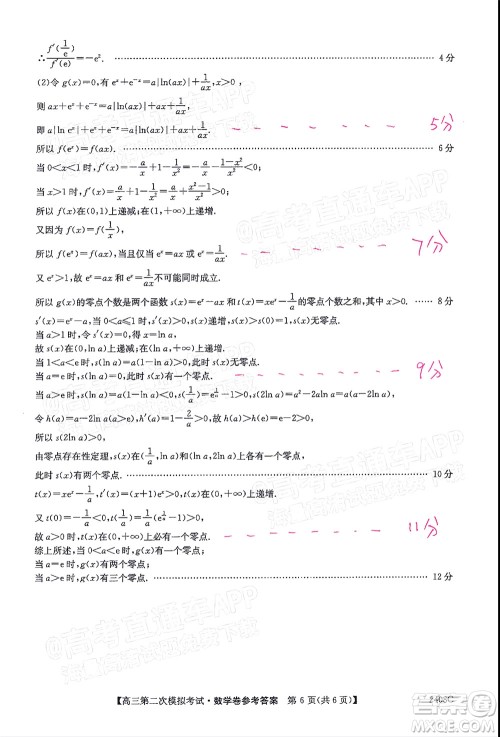 ∴f′(1/e)/f′(e)=-e². 4 分
(2)令 g(x)=0,有 ax+eˣ+e⁻ˣ=a|ln(ax)|+1/ax,x>0,
则 ax+eˣ+e⁻ˣ=a|ln(ax)|+1/ax,
即 a|ln eˣ|+eˣ+e⁻ˣ=a|ln(ax)|+ax+1/ax, 5分
所以 f(eˣ)=f(ax). 6 分
当 0<x<1 时,f′(x)=-a/x+1-1/x²=-a/x-(1-x²)/x²<0,
当 x>1 时,f′(x)=a/x+1-1/x²=a/x+(x²-1)/x²>0,
所以 f(x)在(0,1)上递减,在(1,+∞)上递增.
又因为 f(x)=f(1/x),
所以 f(eˣ)=f(ax),当且仅当 eˣ=ax 或 eˣ=1/ax. 7分
又 eˣ>1,故 eˣ=ax 和 eˣ=1/ax 不可能同时成立.
所以 g(x)的零点个数是两个函数 s(x)=eˣ-ax 和 t(x)=xeˣ-1/a 的零点个数之和,其中 x>0. 8 分
s′(x)=eˣ-a,当 0<a≤1 时,s′(x)>0,s(x)递增,s(x)>s(0)=1,s(x)无零点.
当 a>1 时,令 s′(x)=0,得 x=ln a,
故 s(x)在(0,ln a)上递减,在(ln a,+∞)上递增.
当 1<a<e 时,s(ln a)=a(1-ln a)>0,此时 s(x)无零点.
当 a=e 时,s(ln a)=0,此时 s(x)有一个零点. 9分
当 a>e 时,s(ln a)=a(1-ln a)<0,s(2ln a)=a²-2aln a=a(a-2ln a),s(1/a)=e^(1/a)-1>0,
令 h(a)=a-2ln a(a>e),h′(a)=1-2/a>0,
所以 s(2ln a)>0,
由零点存在性定理,s(x)在(1/a,ln a)和(ln a,2ln a)上各有一个零点,
此时 s(x)有两个零点. 10 分
t(x)=xeˣ-1/a,t′(x)=(x+1)eˣ>0,t(x)在(0,+∞)上递增.
又 t(0)=-1/a<0,t(1/a)=1/a(e^(1/a)-1)>0,
故 a>0 时,t(x)在(0,+∞)上必有一个零点. 11分
综上所述,当 0<a<e 时,g(x)有一个零点;
当 a=e 时,g(x)有两个零点;
当 a>e 时,g(x)有三个零点. 12 分
【高三第二次模拟考试·数学卷参考答案 第 6 页(共 6 页)】